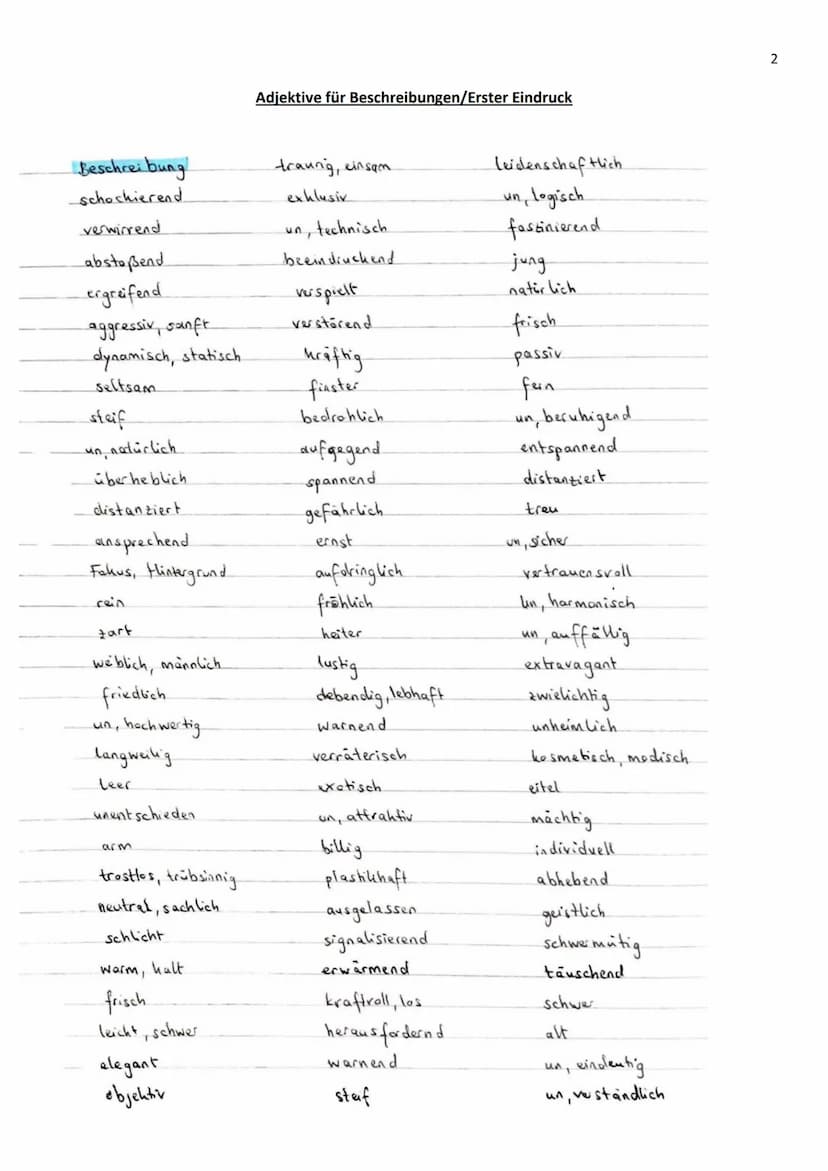 2
Adjektive für Beschreibungen/Erster Eindruck
Beschreibung
schockierend
verwirrend
abstoßend
ergreifend
aggressiv, sanft
dynamisch, statisch
seltsam
steif
un, natürlich
überheblich
distanziert
ansprechend
Fokus, Hintergrund
rein
zart
weiblich, männlich
friedlich
un, hochwertig
langweilig
leer
unentschieden
arm
trostlos, trübsinnig
neutral, sachlich
schlicht
warm, kalt
frisch
leicht, schwer
elegant
objektiv
traurig, einsam
exklusiv
un, technisch
beeindruckend
verspielt
verstörend
kräftig
finster
bedrohlich
aufgegend
spannend
gefährlich
ernst
aufdringlich
fröhlich
heiter
lustig
lebendig, lebhaft
warnend
verräterisch
exotisch
un, attraktiv
billig
plastikhaft
ausgelassen
signalisierend
erwärmend
kraftvoll, los
herausfordernd
warnend
steif
leidenschaftlich
un, logisch
faszinierend
jung
natürlich
frisch
passiv
fern
un, beruhigend
entspannend
distanziert
treu
un, sicher
vertrauensvoll
un, harmonisch
un, auffällig
extravagant
zwielichtig
unheimlich
kosmetisch, modisch
eitel
mächtig
individuell
abhebend
geistlich
schwermütig
täuschend
schwer
alt
un, eindeutig
un, verständlich